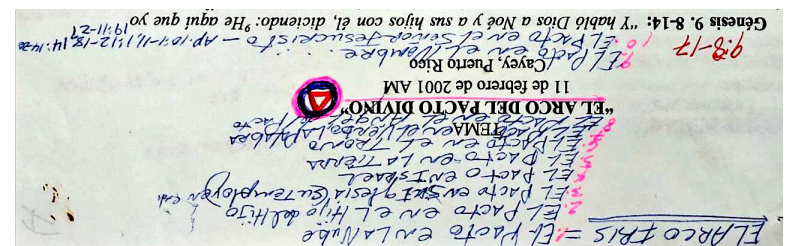 EL ARCO IRIS = 1. EL Pacto en La Nube
2. EL PACTO en el Hijo del Hijo
3. EL Pacto en Iglesia (Su Templo y en
EL PACTO en ISRAEL
EL PACTO en La Tierra
EL PACTO en el Trono
EL PACTO en el Verbo, La Palabra
TEMA
EL PACTO en el Angel del Pacto
"EL ARCO DEL PACTO DIVINO"
11 de febrero de 2001 AM
Cayey, Puerto Rico
9. EL Pacto en el Nombre.
10. EL PACTO en el Señor Jesucristo – Ap. 10:1-11, 1:12-18, 14:14-20
9:8-17 19:11-21
Génesis 9. 8-14: “Y habló Dios a Noé y a sus hijos con él, diciendo: ⁹He aquí que yo